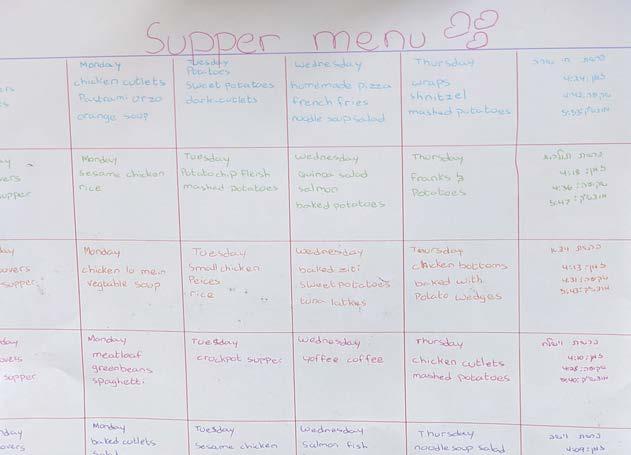 Supper menu
Monday
chicken cutlets
Pastrami orzo
orange soup
Tuesday
Potatoes
sweet potatoes
dark cutlets
wednesday
homemade pizza
french fries
noodle soup salad
Thursday
wraps
shnitzel
mashed potatoes
4:24
4:42
5:53
supper
Monday
sesame chicken
rice
Tuesday
Potatochip fleish
mashed Potatoes
wednesday
quinoa salad
salmon
baked potatoes
Thursday
Franks &
Potatoes
4:18
4:36
5:47
supper
Monday
chicken lo mein
vegtable soup
Tuesday
Small chicken
Peices
rice
wednesday
baked ziti
sweet potatoes
tuna latkes
Thursday
chicken bottoms
baked with
Potato wedges
4:13
4:31
5:43
supper
Monday
meatloaf
greenbeans
spaghetti
Tuesday
crockpot supper
wednesday
yoffee coffee
Thursday
chicken cutlets
mashed potatoes
4:10
4:28
5:40
Monday
baked cutlets
Tuesday
sesame chicken
wednesday
salmon fish
Thursday
noodle soup salad
4:09